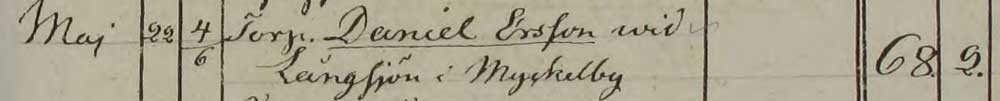 Maj 22 4/6 Torp. Daniel Ersson wid
Långsjön i Myckelby 68. 2.